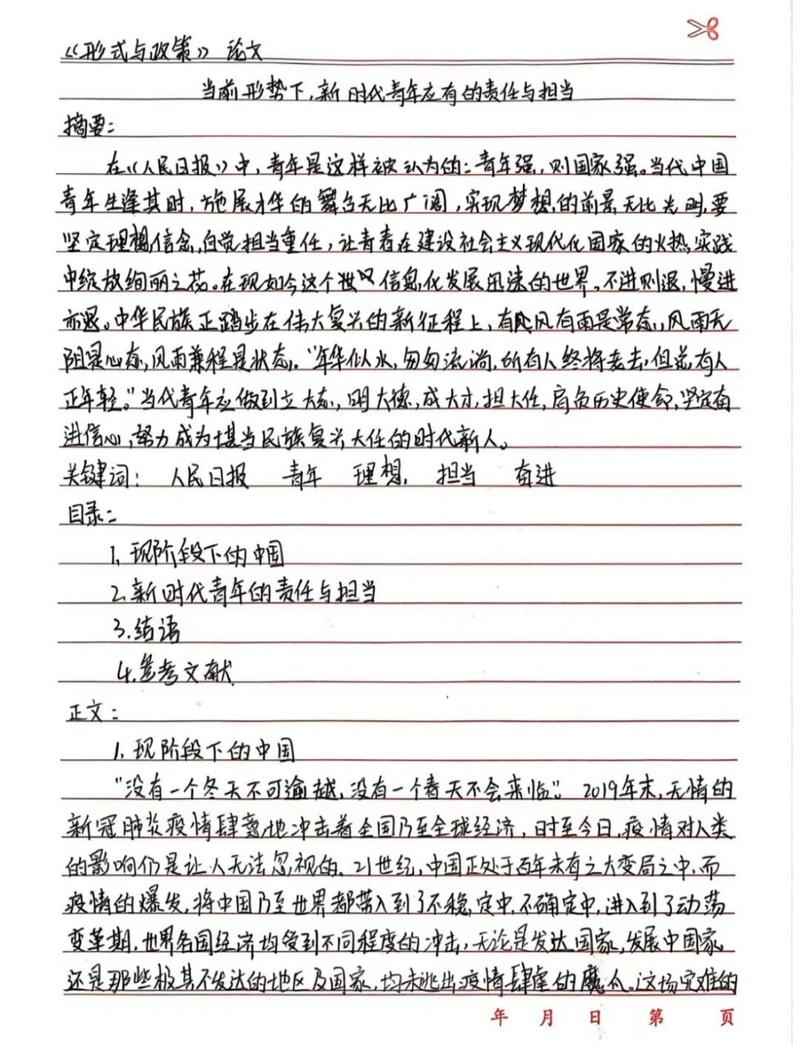 《形式与政策》论文
当前形势下,新时代青年应有的责任与担当
摘要:
在《人民日报》中,青年是这样被认为的:青年强,则国家强。当代中国
青年生逢其时,施展才华的舞台无比广阔,实现梦想的前景无比光明,要
坚定理想信念,自觉担当重任,让青春在建设社会主义现代化国家的火热实践
中绽放绚丽之花。在现如今这个世 信息化发展迅速的世界,不进则退,慢进
亦退。中华民族正踏步在伟大复兴的新征程上,有风有雨是常态,风雨无
阻是心态,风雨兼程是状态。“年华似水,匆匆流淌,所有人终将老去,但总有人
正年轻。”当代青年应做到立大志,明大德,成大才,担大任,肩负历史使命,坚定奋
进信心,努力成为堪当民族复兴大任的时代新人。
关键词: 人民日报 青年 理想 担当 奋进
目录:
1.现阶段下的中国
2.新时代青年的责任与担当
3.结语
4.参考文献
正文:
1.现阶段下的中国
“没有一个冬天不可逾越,没有一个春天不会来临”。2019年末,无情的
新冠肺炎疫情肆虐地冲击着全国乃至全球经济,时至今日,疫情对人类
的影响仍是让人无法忽视的。21世纪,中国正处于百年未有之大变局之中,而
疫情的爆发,将中国乃至世界都带入到了不稳定中,不确定中,进入到了动荡
变革期,世界各国经济均受到不同程度的冲击,无论是发达国家,发展中国家
还是那些极其不发达的地区及国家,均未逃出疫情肆虐的魔爪。这场灾难的
年 月 日 第 页